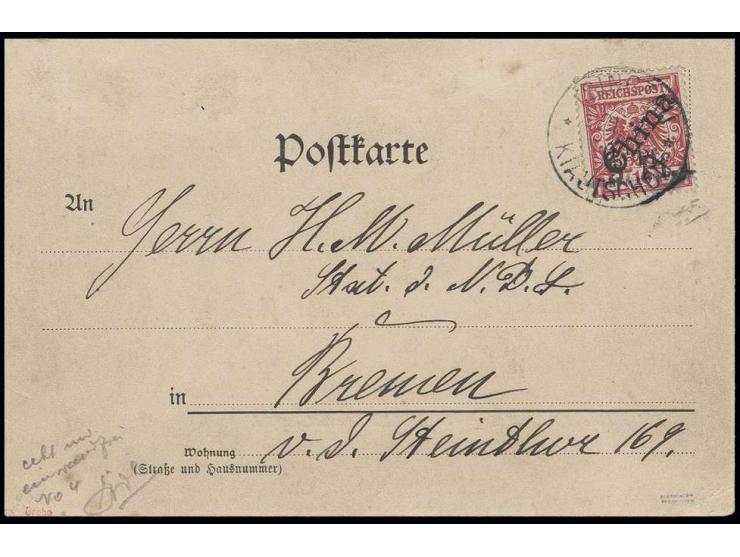 REICHSPOST
China
KIAUTSCHOU
Postkarte
An Herrn H. W. Müller
Stat. d. N. D. L.
in Bremen
Wohnung v. d. Steinthor 169.
(Straße und Hausnummer)
echt und
einwandfrei
No 4
Grobe